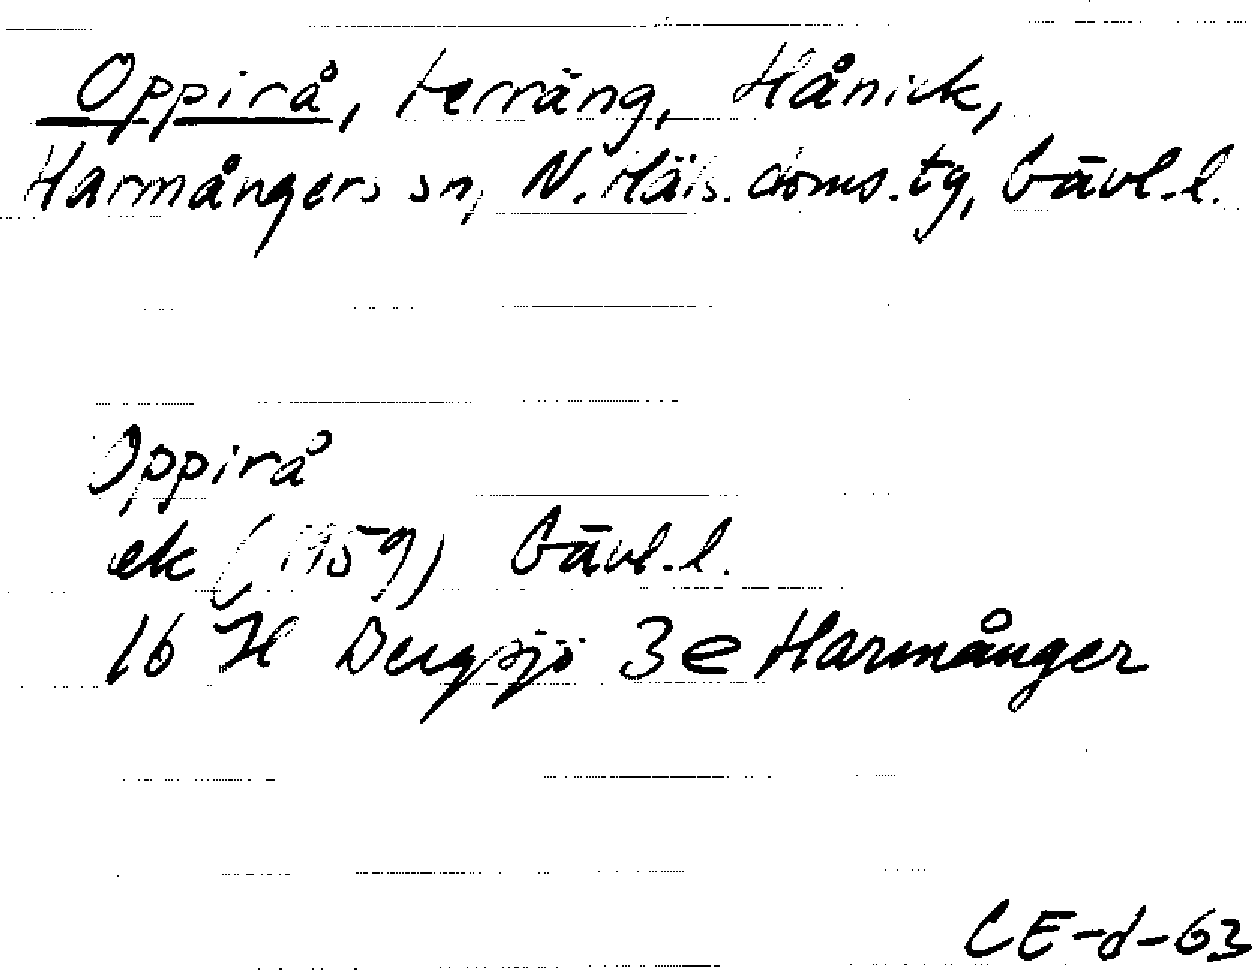 Oppirå, terräng, Hånick,
Harmångers sn, N. Häls. doms. tg, Gävl. l.
Oppirå
ek (1959) Gävl. l.
16 H Bergsjö 3e Harmånger
CE-d-63